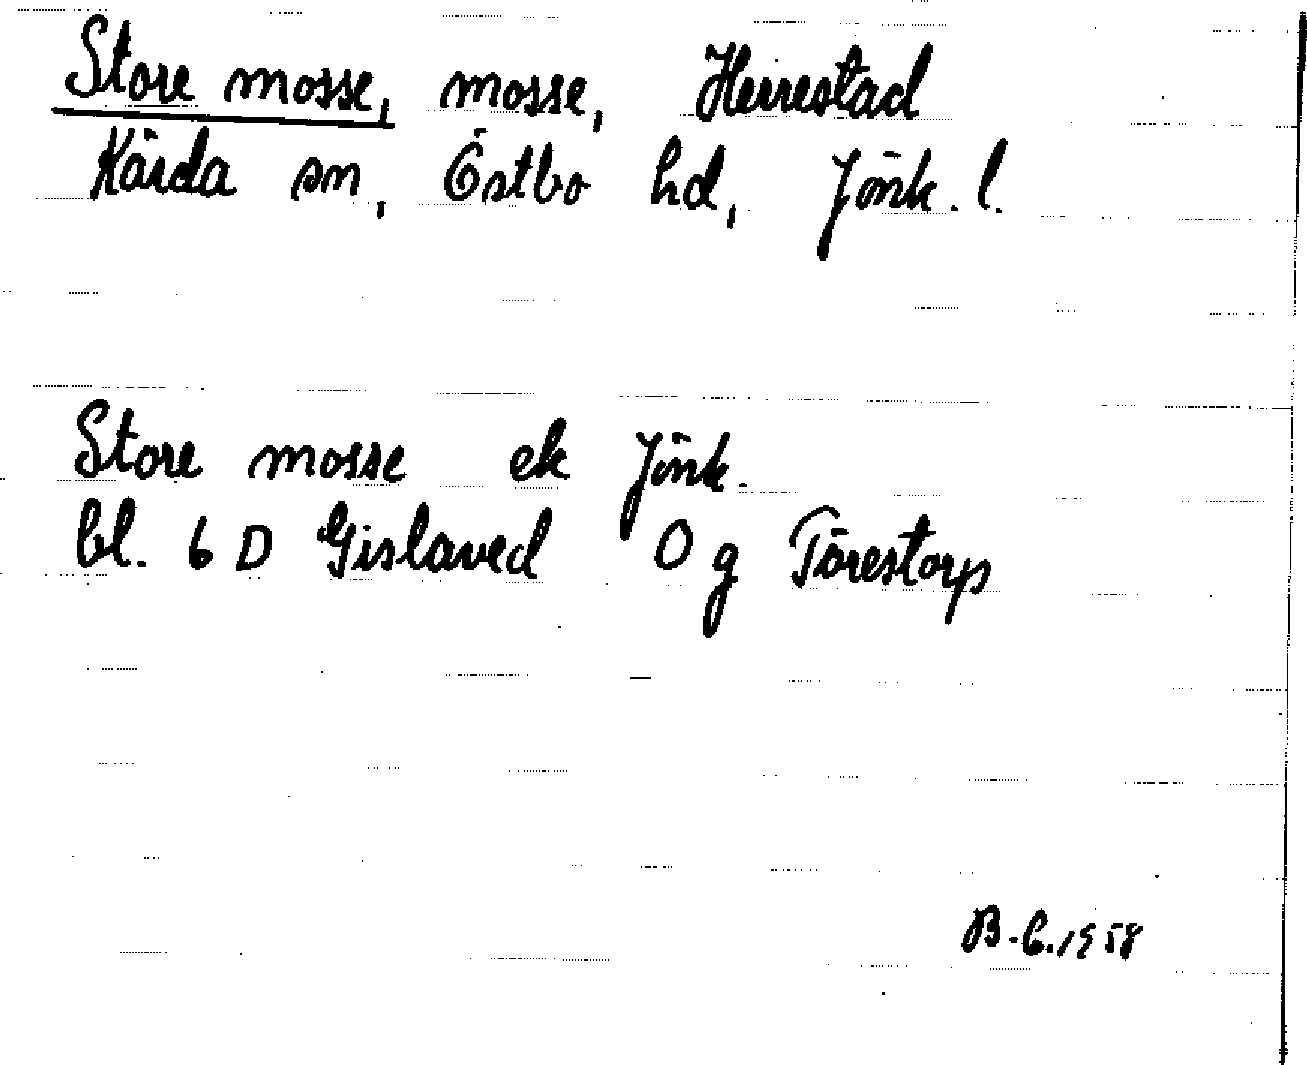 Store mosse, mosse, Herrestad
Kärda sn, Östbo hd, Jönk. l.
Store mosse ek Jönk.
bl. 6 D Gislaved 0 g Tårestorp
B.G. 1958